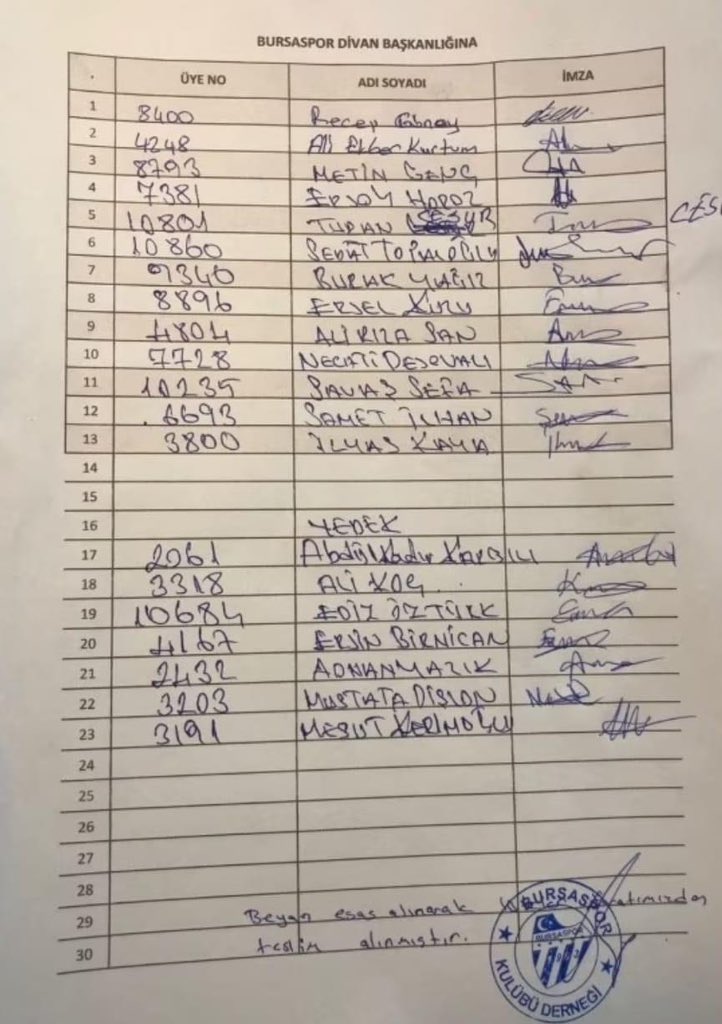 BURSASPOR DİVAN BAŞKANLIĞINA
. ÜYE NO ADI SOYADI İMZA
1 8400 Recep
2 4248 Ali Ekber Kurtum
3 8793 METİN GENÇ
4 7381 ERSOY HOROZ
5 10801 TURAN
6 10860 SEDAT TOPALOĞLU
7 9346 BURAK YAĞIZ
8 8896 ERSEL KURU
9 4804 ALİ RIZA SAN
10 7728 NECATİ DEŞOVALI
11 10235 SAVAŞ SEFA
12 6693 SAMET İLHAN
13 3800 İLYAS KAYA
14
15
16 YEDEK
17 2061 Abdülkadir KARGILI
18 3318 ALİ KOÇ
19 10684 EDİZ ÖZTÜRK
20 4167 ERSİN BİRNİCAN
21 2432 ADNAN MAZIK
22 3203 MUSTAFA
23 3191 MESUT KERİMOĞLU
24
25
26
27
28
29 Beyan esas alınarak tarafımızdan
30 teslim alınmıştır.
BURSASPOR
BURSASPOR
KULÜBÜ DERNEĞİ